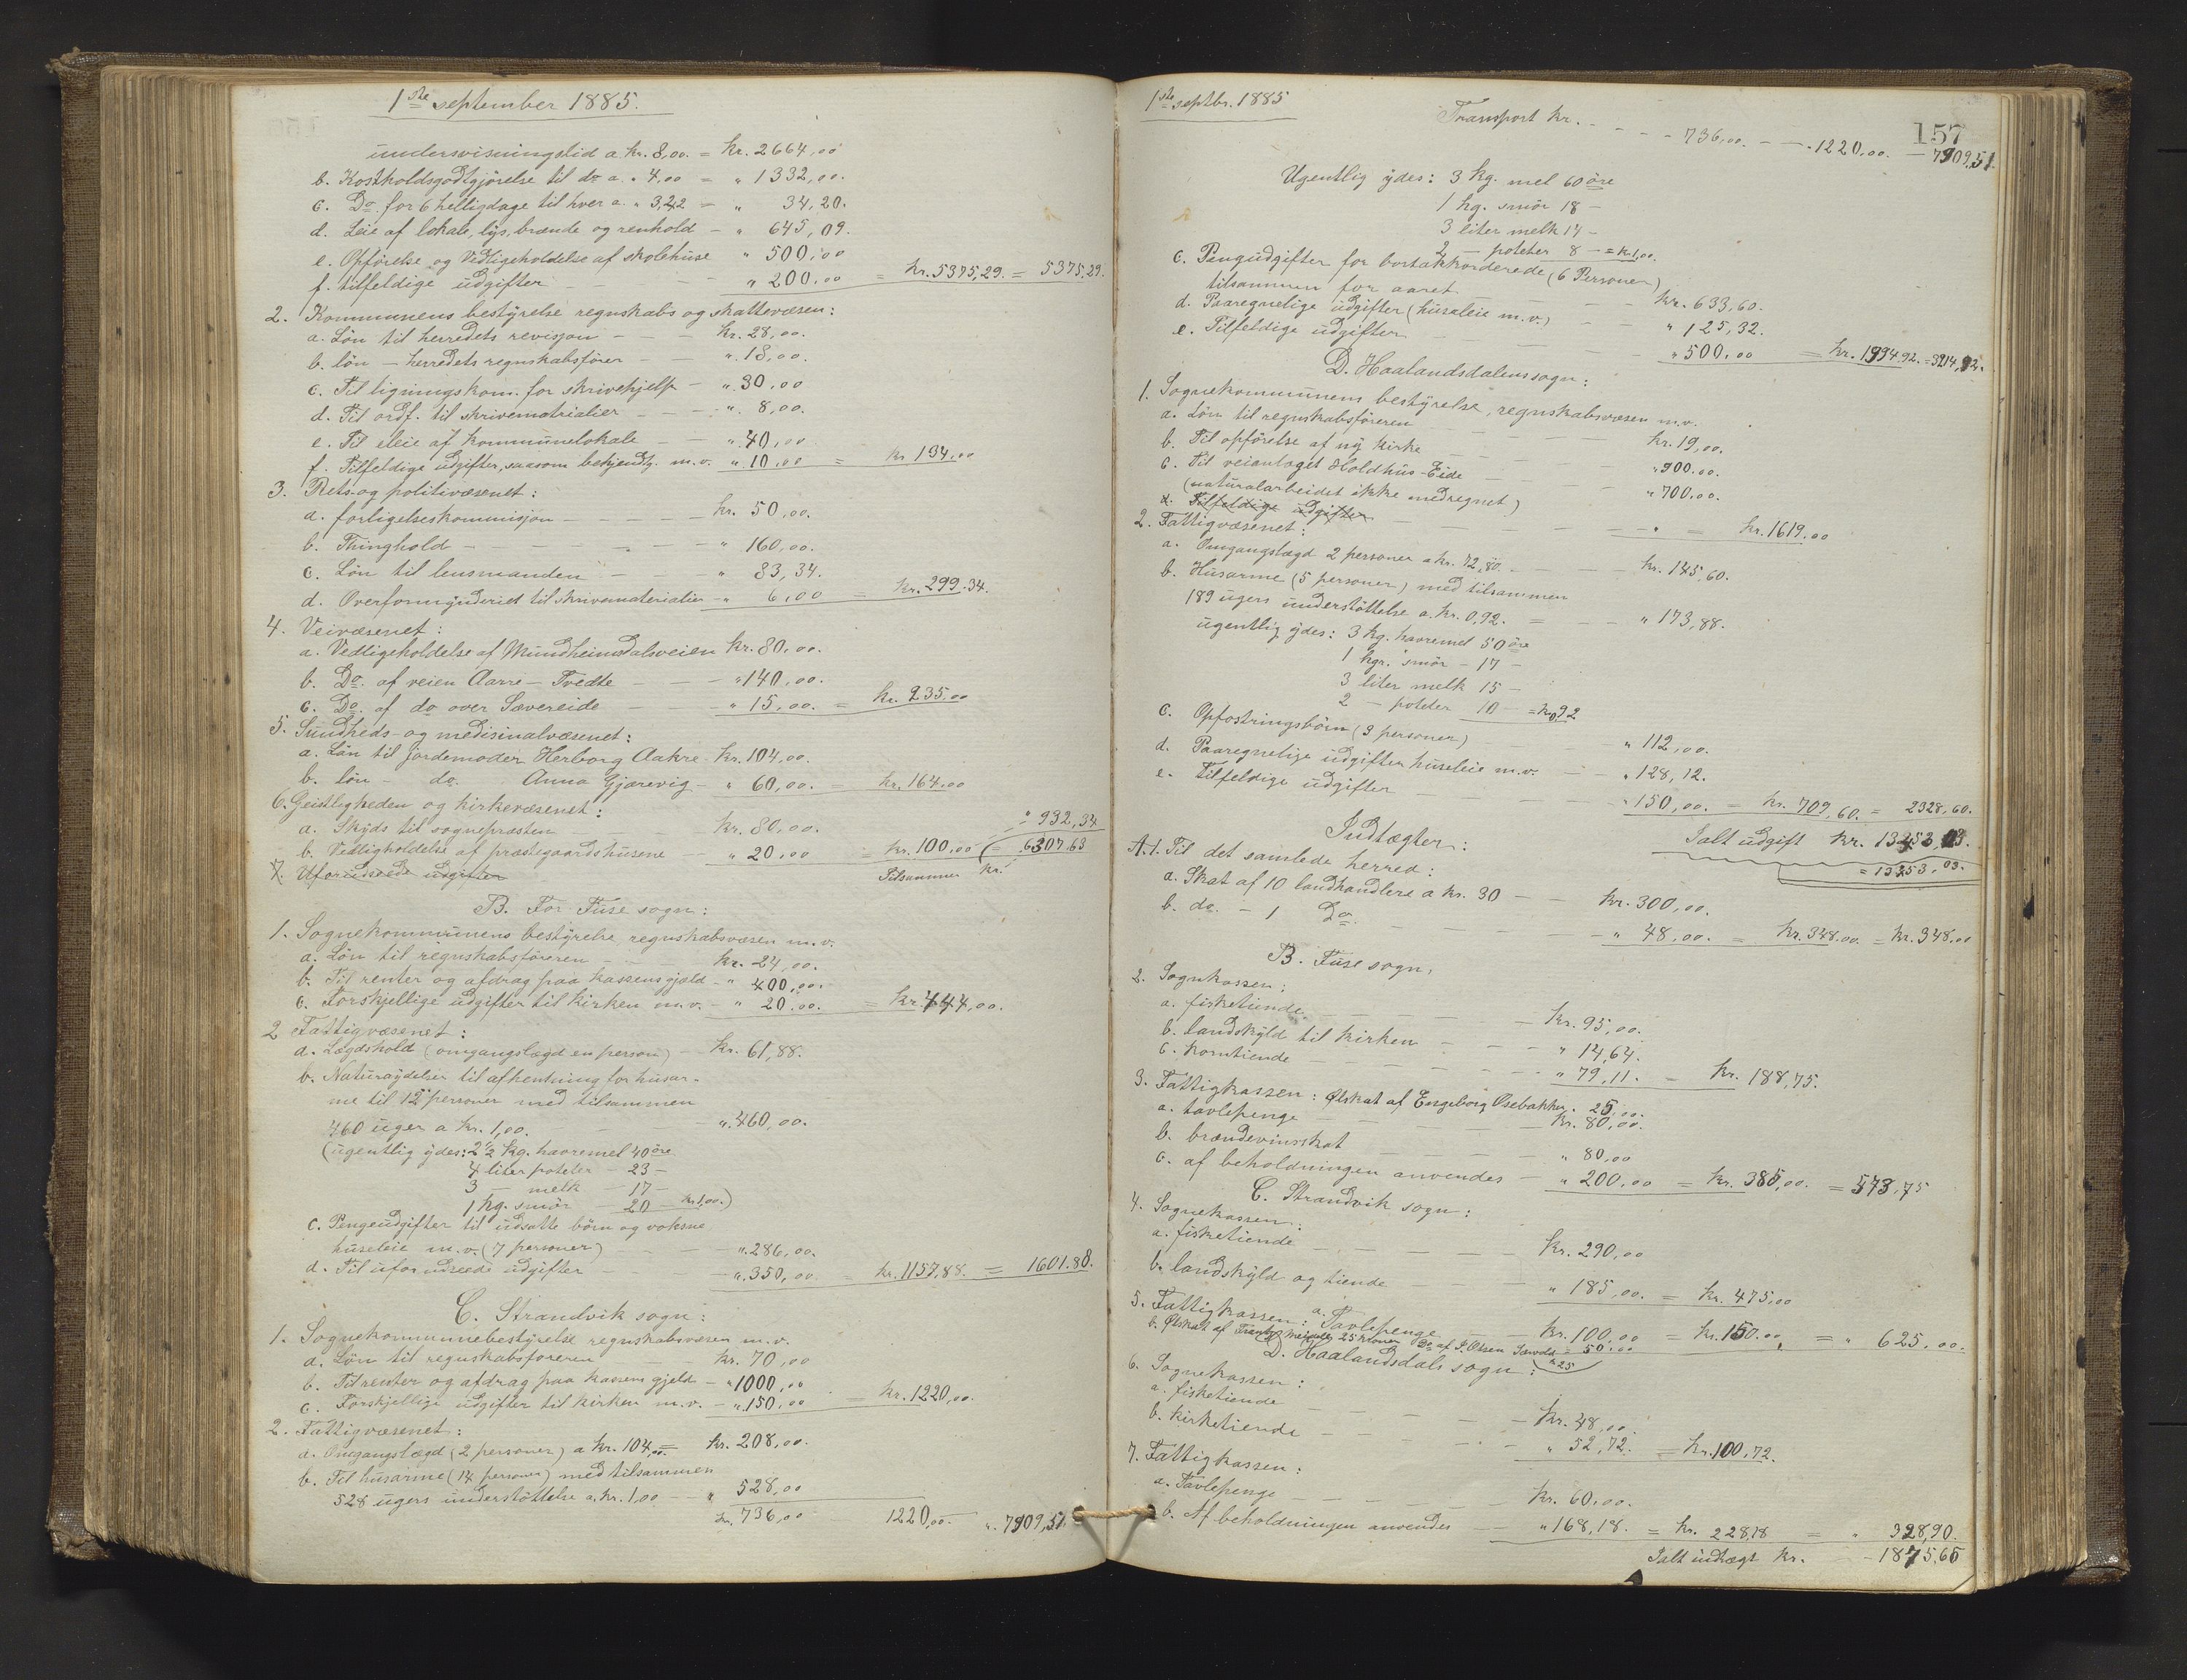 1ste september 1885.
undervisningstid a kr. 8,00. = kr. 2664,00
b. Kostholdsgodtgjörelse til do a. " 4,00 = " 1332,00.
c. Do for 6 helligdage til hver a. " 3,42 = " 34,20.
d. Leie af lokale, lys, brænde og renhold - " 645,09.
e. Opförelse og Vedligeholdelse af skolehuse " 500,00
f. tilfeldige udgifter - - " 200,00 = kr. 5375,29. = 5375,29.
2. Kommunens bestyrelse regnskabs og skattevæsen:
a. Lön til herredets revisjon - - kr. 28,00.
b. lön - herredets regnskabsförer - - " 18,00.
c. Til ligningskom. for skrivehjelp - " 30,00
d. Til ordf. til skrivematrialier - - " 8,00.
e. Til eleie af kommunelokale - - " 40,00
f. Tilfeldige udgifter, saasom bekjendtg. m.v. " 10,00 = kr 134,00
3. Rets- og politivæsenet:
a. forligelseskommisjon - - - - kr. 50,00.
b. Thinghold - - - - - " 160,00.
c. Lön til lensmanden - - - " 83,34.
d. Overformynderiet til skrivematerialier - " 6,00 = kr. 299.34.
4. Veivæsenet:
a. Vedligeholdelse af Mundheimsdalsveien kr. 80,00.
b. Do. af veien Aarre - Tvedte - - - " 140,00.
c. Do. af do over Sævereide - - " 15,00. = kr. 235.00
5. Sundheds- og medisinalvæsenet:
a. Lön til jordemoder Herborg Aakre kr. 104,00.
b. lön - do. Anna Gjærevig - " 60,00. = kr. 164.00
6. Geistligheden og kirkevæsenet:
a. Skyds til sognepræsten - - kr. 80,00. " 932,34
b. Vedligholdelse af præstegaardshusene - " 20,00 = kr. 100,00 = 6307.63
7. Uforudseede udgifter Tilsammen kr.
B. For Fuse sogn:
1. Sognekommunens bestyrelse regnskabsvæsen m.v.
a. Lön til regnskabsföreren - - kr. 24,00.
b. Til renter og afdrag paa kassens gjeld - " 400,00.
c. Forskjellige udgifter til kirken m.v. - " 20.00. = kr. 444,00.
2 Fattigvæsenet:
a. Lægdshold (omgangslægd en person) - kr. 61,88.
b. Naturaydelser til afhentning for husar-
me til 12 personer med tilsammen
460 uger a kr. 1,00. - - " 460,00.
(ugentlig ydes: 2 1/2 kg. havremel 40 öre
4 liter poteter - 23 -
3 - melk - 17 -
1 kg. smör - 20 - kr 1,00.)
c. Pengeudgifter til udsatte börn og voksne
huseleie m.v. (7 personer) - - " 286,00.
d. Til uforudseede udgifter - - " 350,00. = kr. 1157,88. = 1601.88.
C. Strandvik sogn:
1. Sognekommunebestyrelse regnskabsvæsen m.v.
a. Lön til regnskabsföreren kr. 70,00
b. Til renter og afdrag paa kassens gjeld - " 1000,00
c. Forskjellige udgifter til kirken m.v. - " 150,00 = kr. 1220,00.
2. Fattigvæsenet:
a. Omgangslægd (2 personer) a kr. 104,00 = kr. 208,00.
b. Til husarme (14 personer) med tilsammen
528 ugers understöttelse a kr. 1,00 - - " 528,00
kr. 736,00 1220,00 - " 7909,51.
1ste septbr. 1885
157
Transport kr. - - - - 736,00. - - 1220,00. - 7909,51.
Ugentlig ydes: 3 kg. mel 60 öre
1 kg. smör 18 -
3 liter melk 14 -
2 - poteter 8 - = kr 1,00.
c. Pengudgifter for bortakkorderede (6 Personer)
tilsammen for aaret - - - kr. 633,60.
d. Paaregnelige udgifter (husaleie m.v.) - - " 125,32.
e. Tilfeldige udgifter - - - " 500,00 = kr. 1994 92. = 3214,92.
D. Haalandsdalens sogn:
1. Sognekommunens bestyrelse, regnskabsvæsen m.v.
a. Lön til regnskabsföreren - - - kr. 19,00.
b. Til opförelse af ny kirke - - - " 900.00.
c. Til veianlæget Holdhus-Eide - - - " 700,00.
(naturalarbeidet ikke medregnet)
d. Tilfeldige udgifter - - - " = kr. 1619.00
2. Fattigvæsenet:
a. Omgangslægd 2 personer a kr. 72,80. - - - kr. 145,60.
b. Husarme (5 personer) med tilsammen
189 ugers understöttelse a kr. 0,92. = - - " 173,88.
ugentlig ydes: 3 kg. havremel 50 öre
1 kgr. smör - 17 -
3 liter melk 15 -
2 - poteter 10 - = kr 0,92
c. Opfostringsbörn (3 personer) - - - " 112,00.
d. Paaregnelige udgifter huseleie m.v. - - " 128,12.
e. Tilfeldige udgifter - - - " 150,00. = kr. 709,60. = 2328,60.
Ialt udgift kr. 13453,03.
Indtægter:
= 13453,03.
A. 1. Til det samlede herred:
a. Skat af 10 landhandlere a kr. 30 - - kr. 300,00.
b. do. - 1 Do. - - - " 48,00. = kr. 348.00. = kr. 348,00
B. Fuse sogn.
2. Sognkassen:
a. fisketiende - - - kr. 95,00.
b. landskyld til kirken - - - " 14,64.
c. korntiende - - - " 79,11. = kr. 188,75.
3. Fattigkassen: Ölskat af Engeborg Osebakken. 25,00.
a. tavlepenge - - - kr. 80,00.
b. brændevinsskat - - - " 80,00
c. af beholdningen anvendes - " 200,00 = kr. 385,00. = 573,75
C. Strandvik sogn:
4. Sognekassen:
a. fisketiende - - - kr. 290,00
b. landskyld og tiende - - - " 185,00. = kr. 475,00
5. Fattigkassen: a. Tavlepenge - kr. 100,00 = kr. 150.00 = " 625,00.
b. Ölskat af 25 kroner Do af P. Olsen = 50.00
" 25
D. Haalandsdals sogn:
6. Sognekassen:
a. fisketiende - - - kr. 48,00.
b. kirketiende - - - " 52,72. = kr. 100,72.
7. Fattigkassen:
a. Tavlepenge - - - kr. 60,00.
b. Af beholdningen anvendes - - " 168,18. = kr. 228,18 = " 328,90.
Ialt indtægt kr. - 1875,65